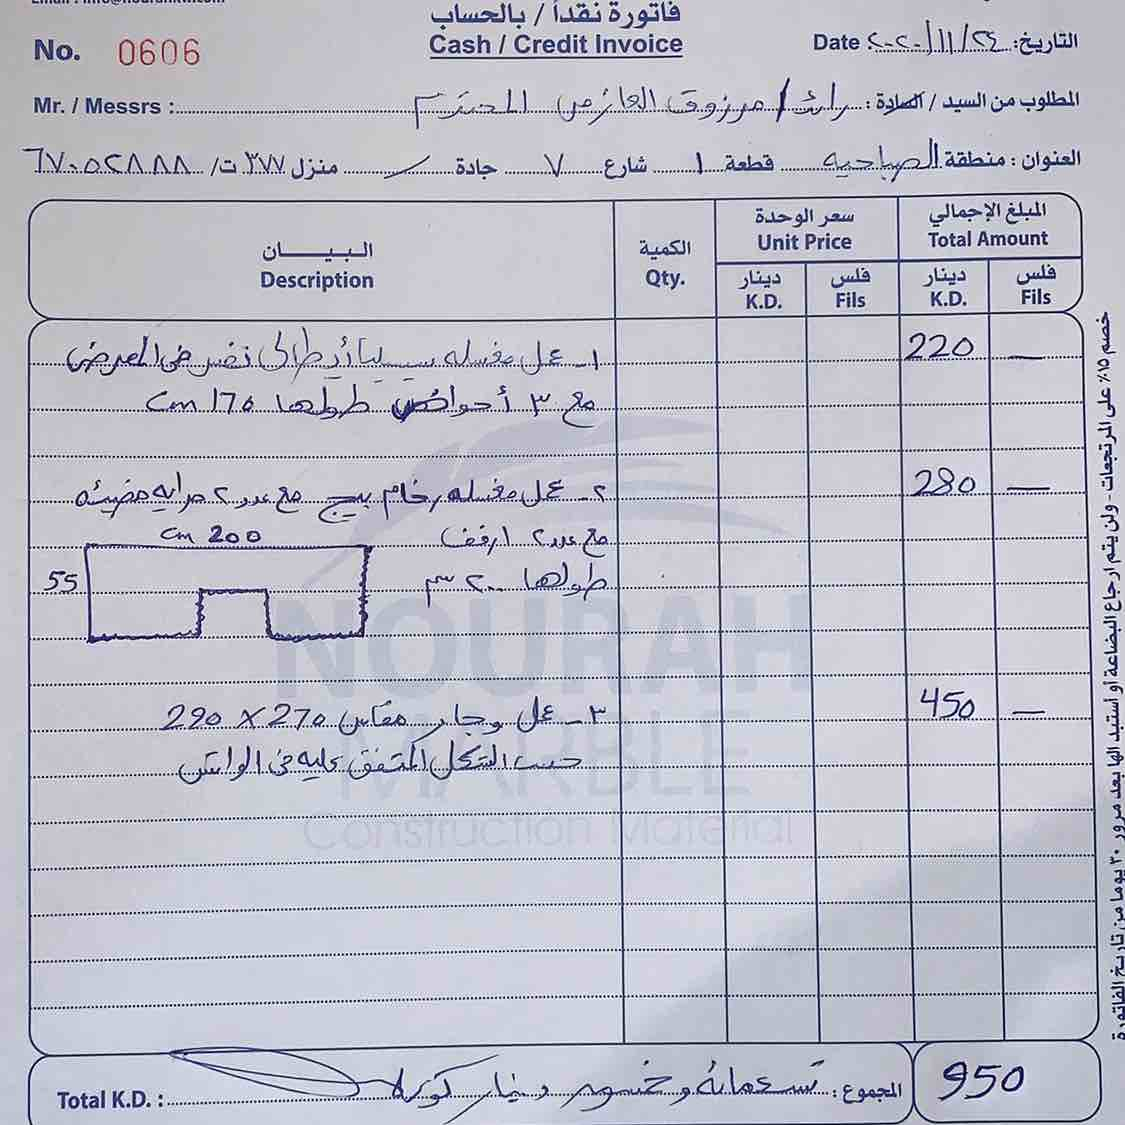 فاتورة نقداً / بالحساب
Cash / Credit Invoice
No. 0606
Date ٢٠٢٠/١١/٢٤ التاريخ:
Mr. / Messrs : رائد / مرزوق العازمي المحترم المطلوب من السيد / السادة :
العنوان : منطقة الصباحية قطعة ١ شارع ٧ جادة / منزل ٣٧٧ ت/ ٦٧٠٥٢٨٨٨
البيـــــان
Description
الكمية
Qty.
سعر الوحدة
Unit Price
دينار
K.D.
فلس
Fils
المبلغ الإجمالي
Total Amount
دينار
K.D.
فلس
Fils
١- عمل مغسله ايطالى نفس فى المعرض 220 —
مع ٣ أحواض طولها 170 cm
٢- عمل مغسله رخام بيج مع عدد ٢ مرايه مضيئه 280 —
مع عدد ٢ ارفف
cm 200
55
طولها ٢٠٠ سم
٣- عمل وجار مقاس 270 X 290 450 —
حسب الشكل المتفق عليه فى الواتس
NOURAH
MARBLE
Construction Material
Total K.D. : تسعمائة وخمسون دينار كويتى المجموع : 950
خصم ١٥٪ على المرتجعات - ولن يتم ارجاع البضاعة او استبدالها بعد مرور ٣٠ يوما من تاريخ الفاتورة